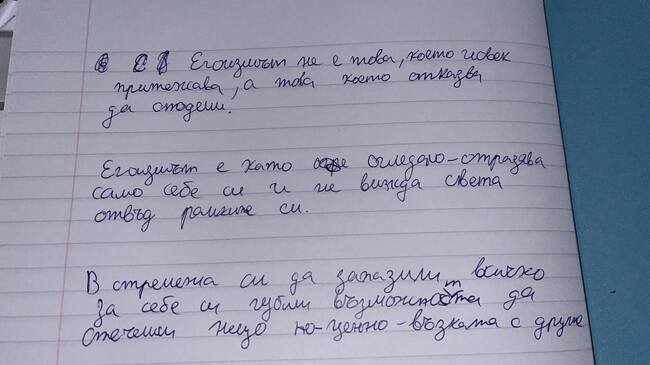 Егоизмът не е това, което човек
притежава, а това което отказва
да сподели.
Егоизмът е като огледало-отразява
само себе си и не вижда света
отвъд рамките си.
В стремежа си да запазим всичко
за себе си губим възможността да
спечелим нещо по-ценно-връзката с другите